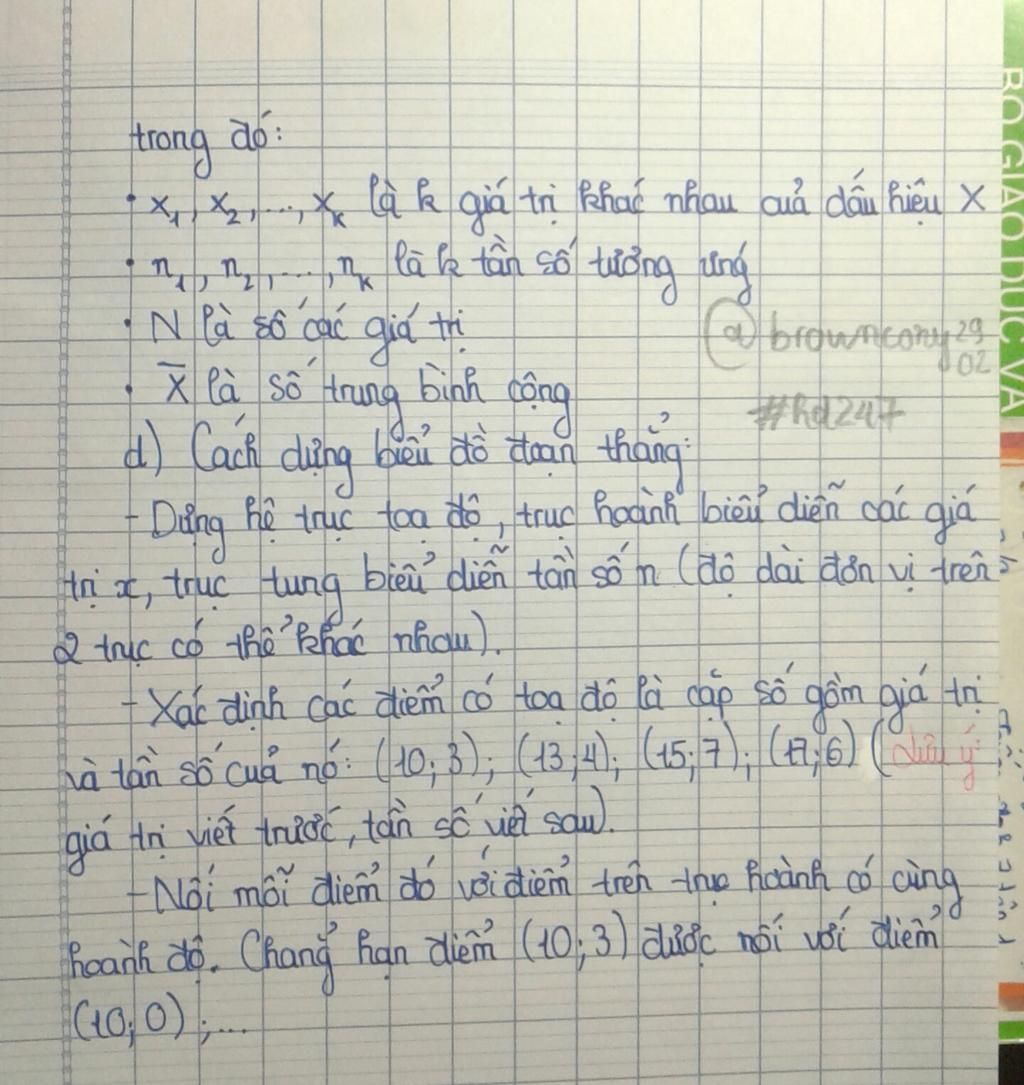 trong đó:
• x₁, x₂, ..., xₖ là k giá trị khác nhau cuả dấu hiệu X
• n₁, n₂, ..., nₖ là k tần số tương ứng
• N là số các giá trị
@browncony 29 02
• X̅ là số trung bình cộng
#hd247
d) Cách dựng biểu đồ đoạn thẳng:
- Dựng hệ trục toạ độ, trục hoành biểu diễn các giá
trị x, trục tung biểu diễn tần số n (độ dài đơn vị trên
2 trục có thể khác nhau).
- Xác định các điểm có toạ độ là cặp số gồm giá trị
và tần số cuả nó: (10; 3); (13; 4); (15; 7); (17; 6) (Lưu ý
giá trị viết trước, tần số viết sau).
- Nối mỗi điểm đó với điểm trên trục hoành có cùng
hoành độ. Chẳng hạn điểm (10; 3) được nối với điểm
(10; 0); ...
BỘ GIÁO DỤC VÀ